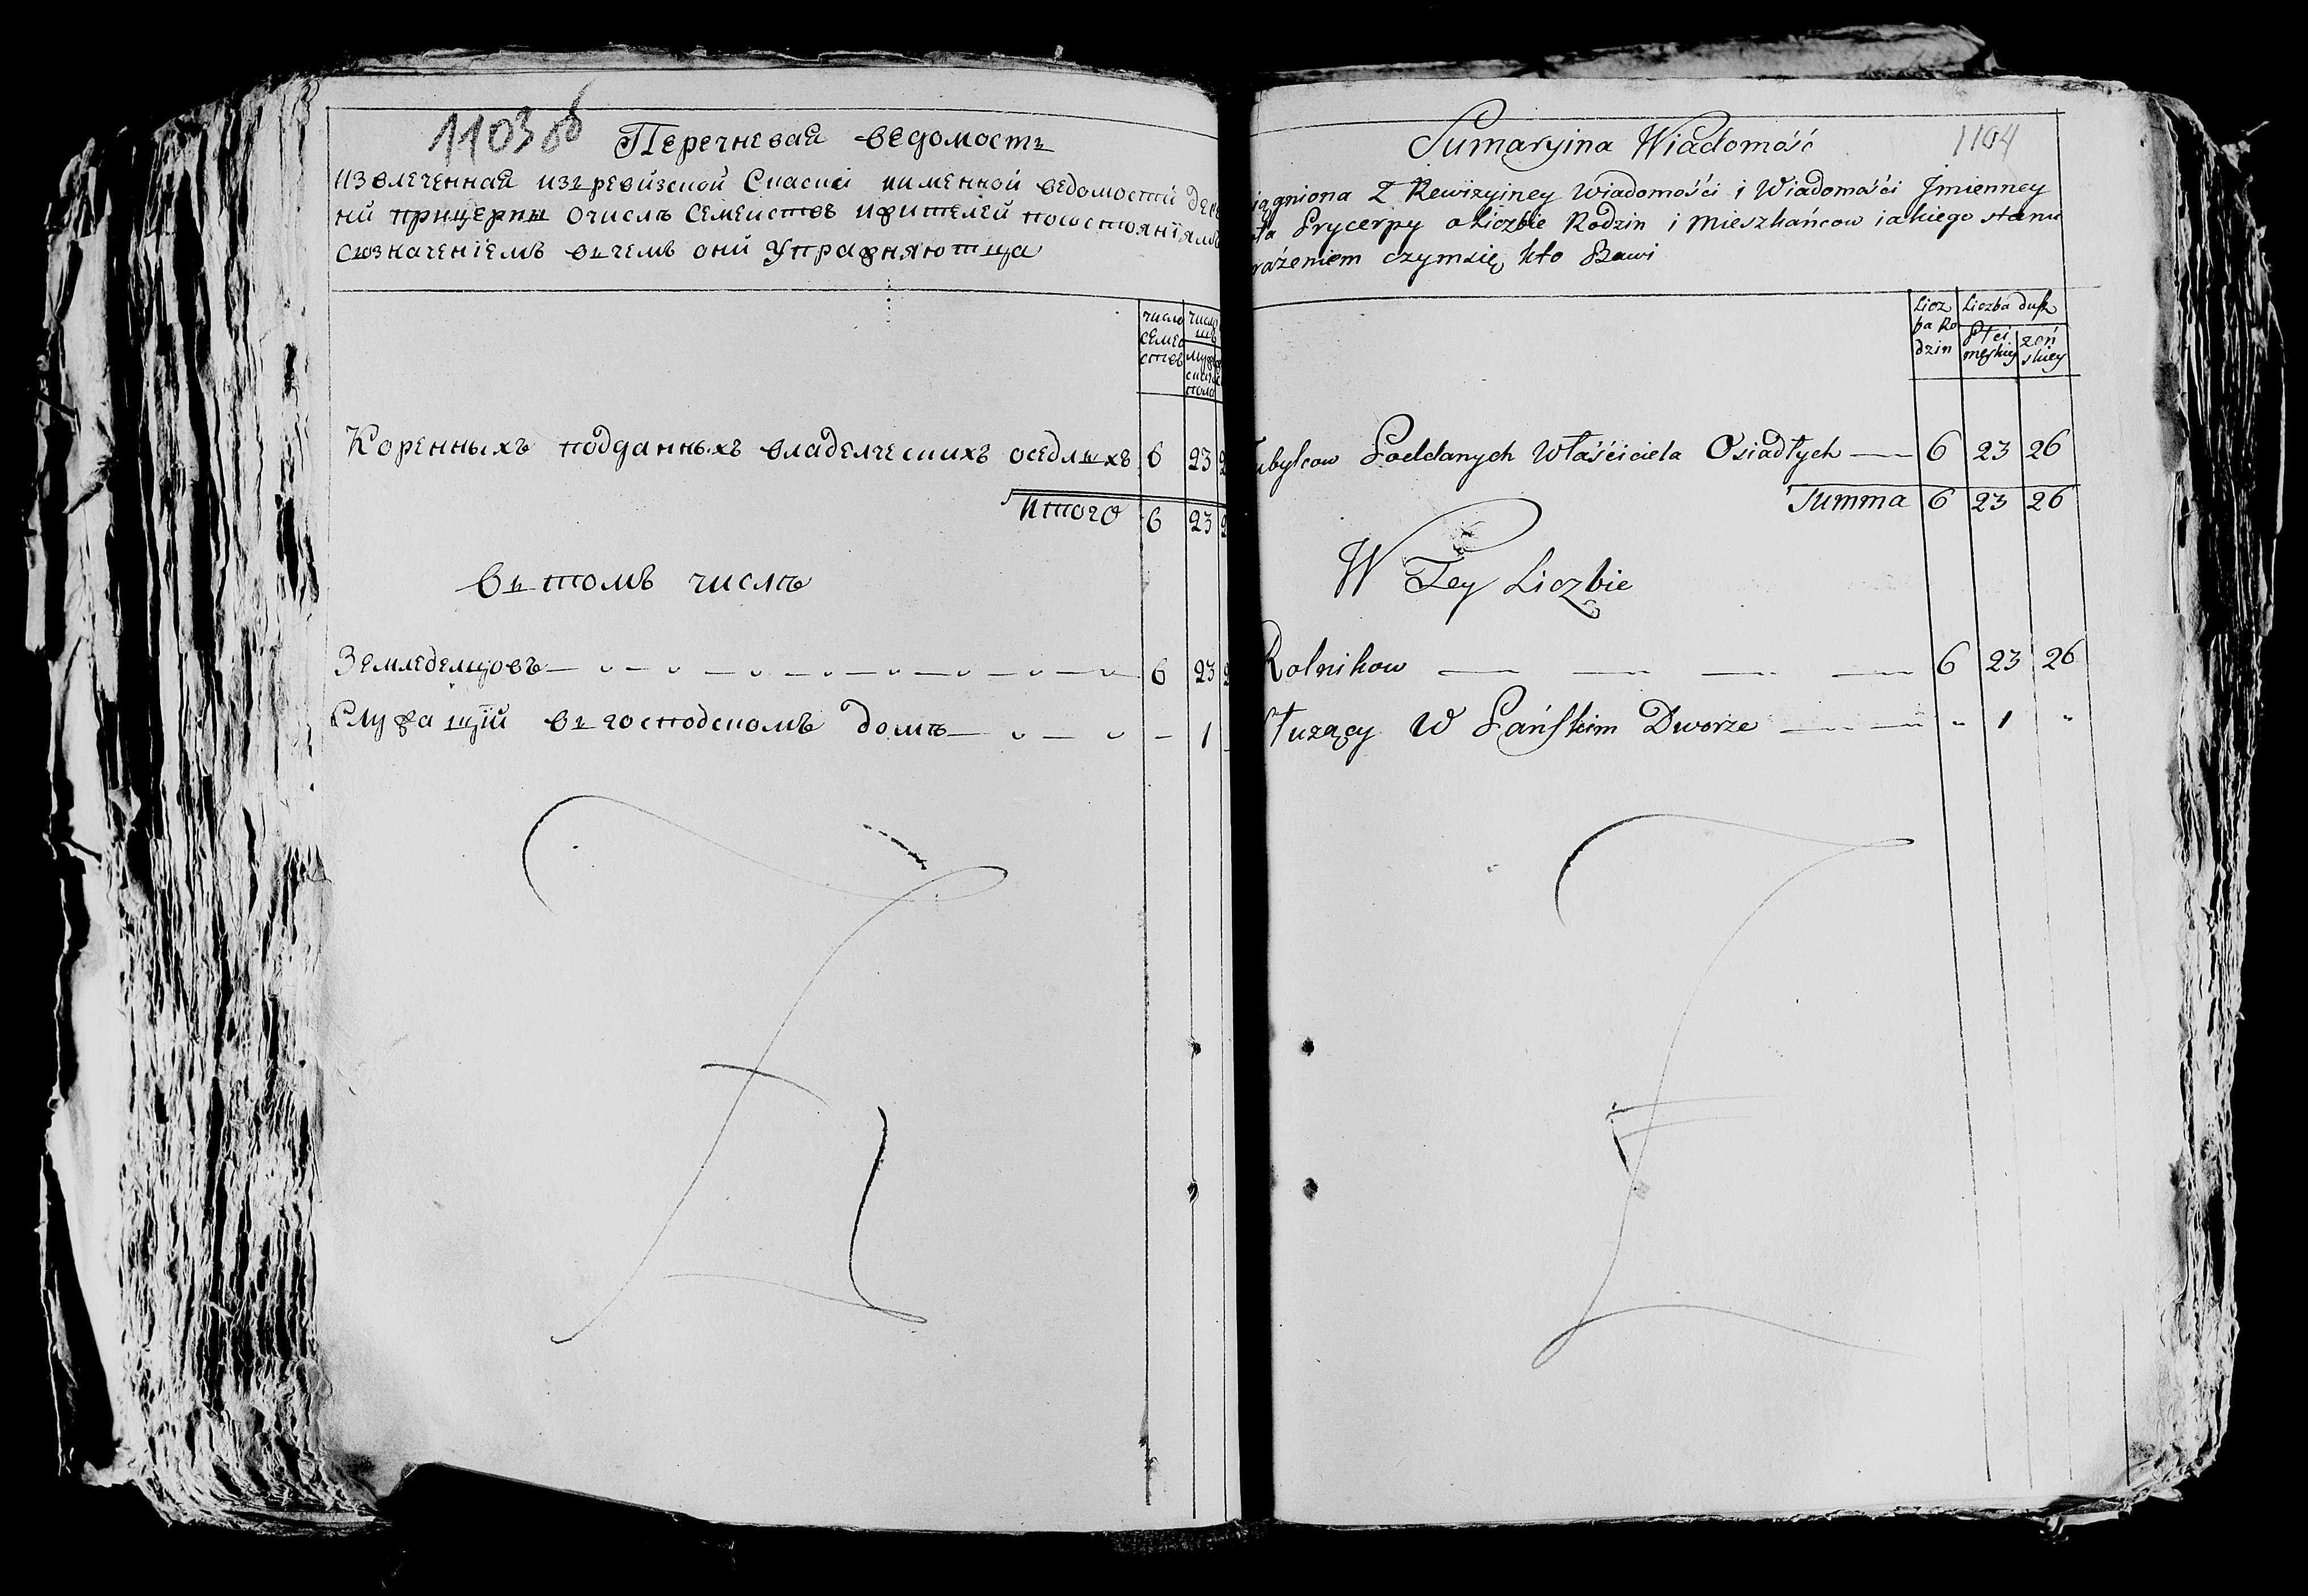 1103об
Перечневая ведомостъ
извлеченная изъ ревизской Сказки именной ведомости дере
ни прицерпы очислѣ семействъ ижителей посостоянїямъ
созначенїемъ въчемъ они упражняютца
число семей ствъ
число
муж
пола
Коренныхъ подданныхъ владелческихъ оседлыхъ 6 23
Итого 6 23
въ томъ числѣ
Земледелцовъ 6 23
Служащїй въ господскомъ домѣ 1
Sumaryina Wiadomość
1104
iągniona Z Rewizyiney Wiadomości i Wiadomości Jmienney
Prycerpy o Liczbie Rodzin i Mieszkańcow iakiego stanu
rażeniem czymsię kto Bawi
Licz ba Ro dzin
Liczba dusz
Płci męskiey
żeń skiey
ubylcow Poddanych Właściciela Osiadłych 6 23 26
Summa 6 23 26
W Tey Liczbie
Rolnikow 6 23 26
łuzący W Pańskim Dworze " 1 "